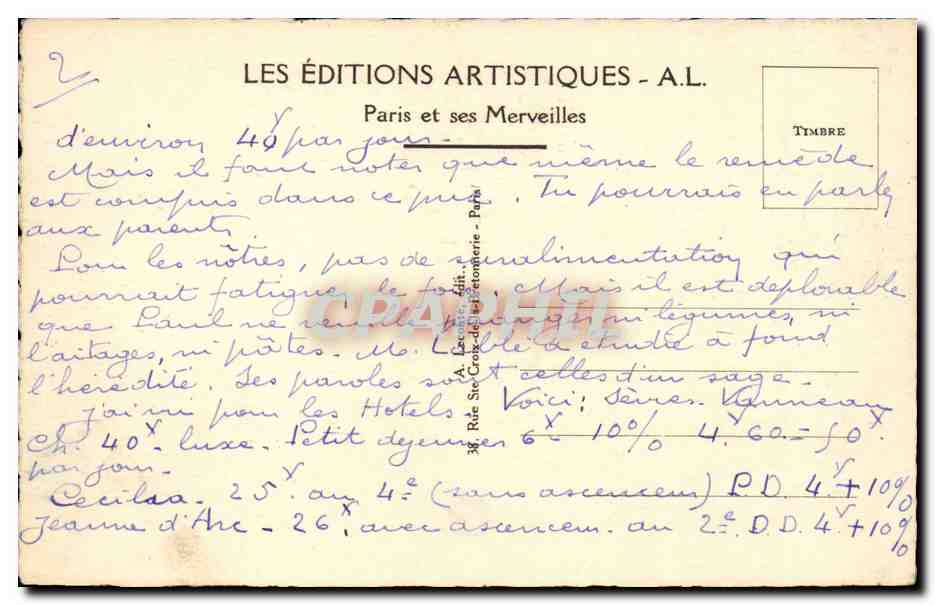 2
LES ÉDITIONS ARTISTIQUES - A.L.
Paris et ses Merveilles
TIMBRE
d'environ 40 par jour -
Mais il faut noter que même le remède
est compris dans ce prix. Tu pourrais en parler
aux parents.
Pour les nôtres, pas de suralimentation qui
pourrait fatiguer le foie. Mais il est déplorable
que Paul ne veuille ni légumes, ni
laitages, ni pâtes. M. a étudié à fond
l'hérédité. Ses paroles sont celles d'un sage -
J'ai vu pour les Hotels. Voici: Sèvres-Vanneau
Ch. 40x - luxe. Petit déjeuner 6x - 10% 4.60 = 50x
par jour -
Cecilia - 25x au 4e (sans ascenseur) P.D. 4x + 10%
Jeanne d'Arc - 26x avec ascenseur au 2e D.D. 4x + 10%
A. Leconte, édit.,
38, Rue Ste Croix-de-la-Bretonnerie - Paris
CPAPHIL